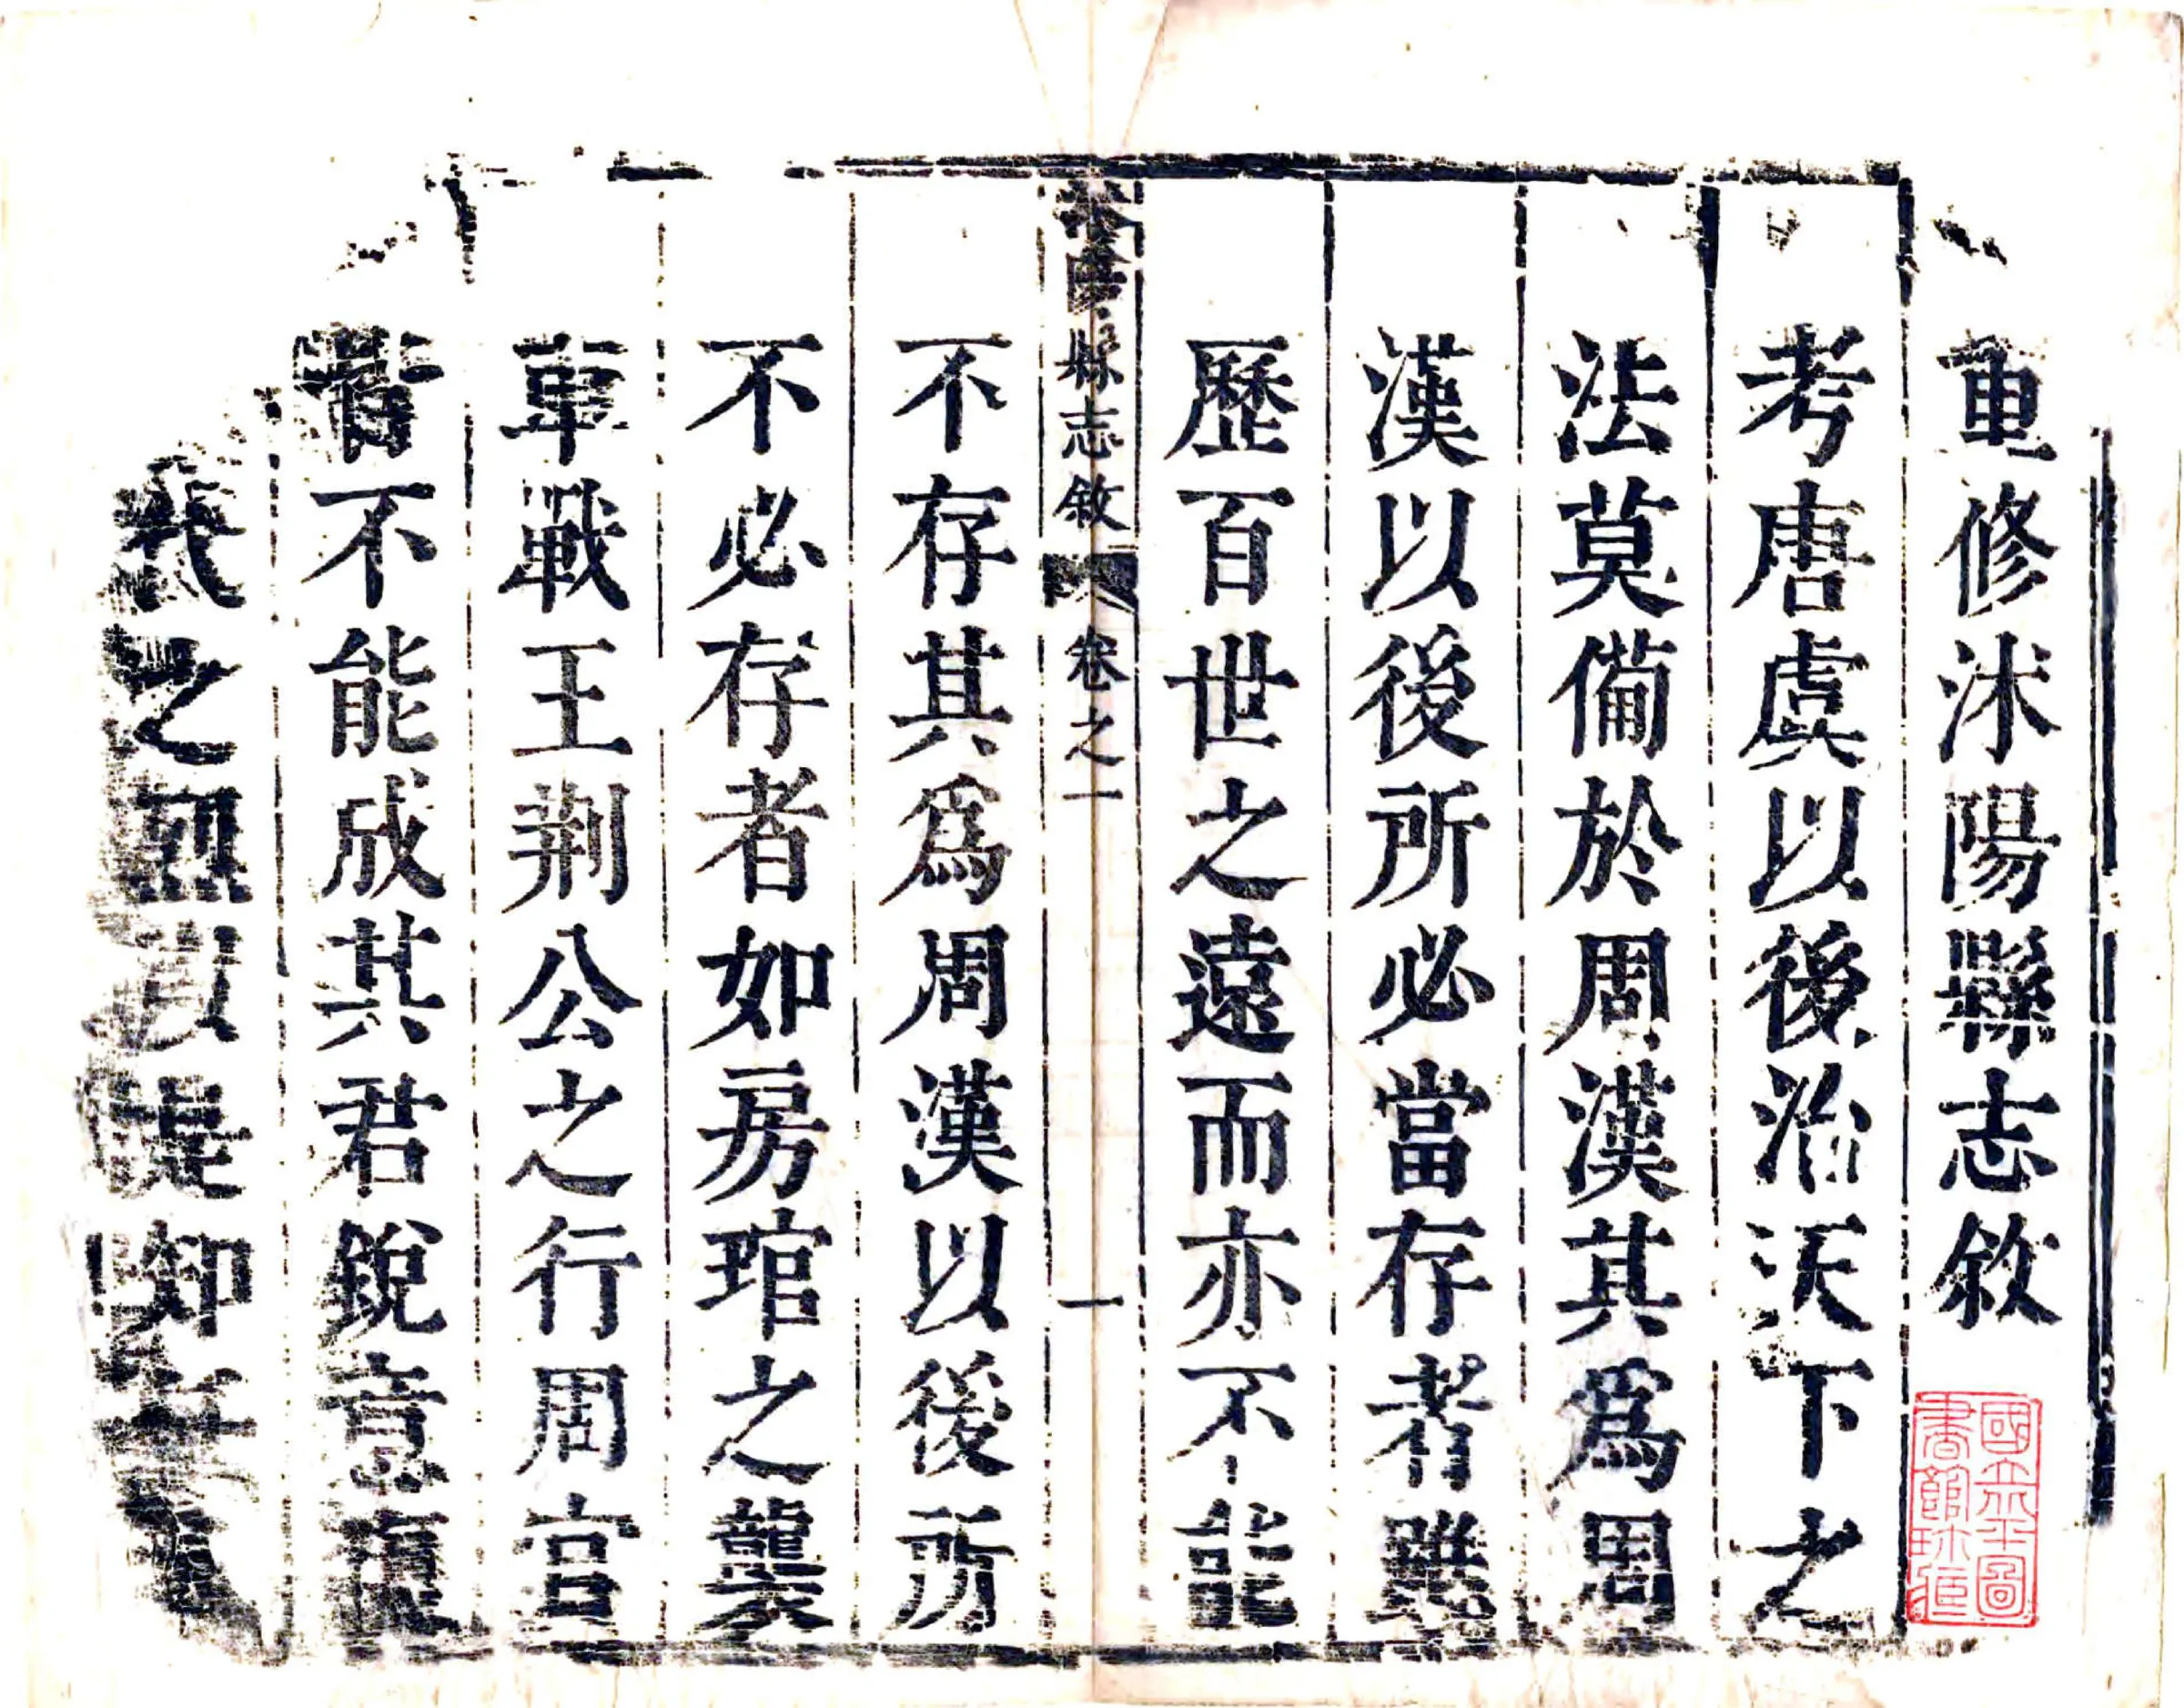 重修沭陽縣志敘
考唐虞以後治天下之
法莫備於周漢其爲周
漢以後所必當存者雖
歷百世之遠而亦不能
縣志敘 卷之一 一
不存其爲周漢以後所
不必存者如房琯之襲
車戰王荆公之行周官
皆不能成其君銳意復
之
國立北平圖書館珍藏